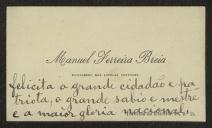 Manuel Ferreira Breia
felicita o grande cidadão e pa
triota, o grande sabio e mestre
e a maior gloria nacional,